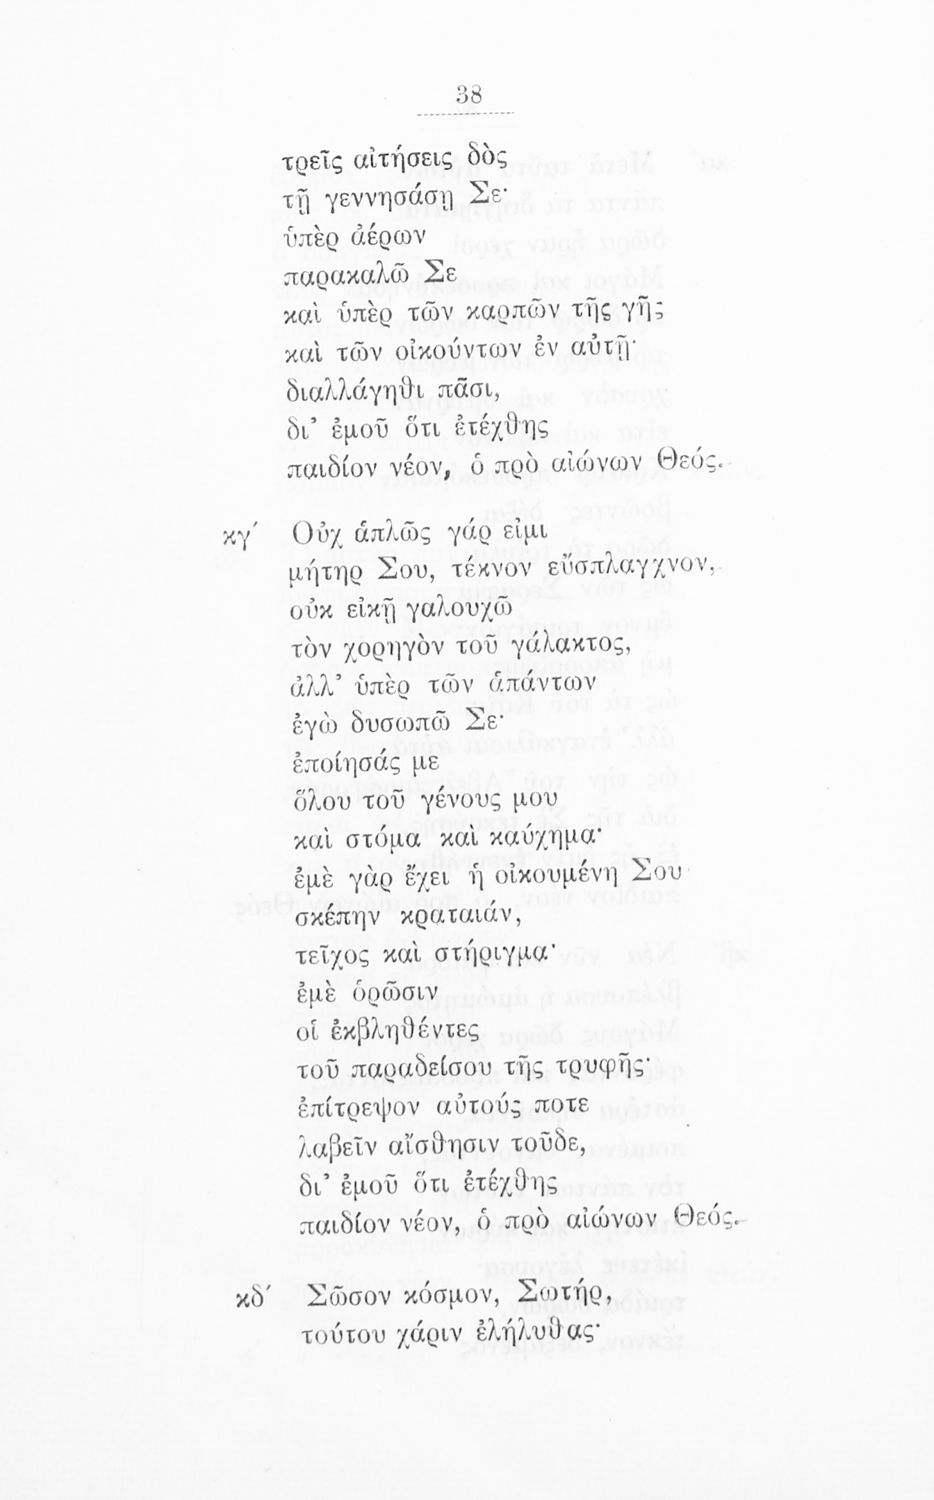 38
τρεῖς αἰτήσεις δὸς
τῇ γεννησάσῃ Σε·
ὑπὲρ ἀέρων
παρακαλῶ Σε
καὶ ὑπὲρ τῶν καρπῶν τῆς γῆς
καὶ τῶν οἰκούντων ἐν αὐτῇ·
διαλλάγηθι πᾶσι,
δι’ ἐμοῦ ὅτι ἐτέχθης
παιδίον νέον, ὁ πρὸ αἰώνων Θεός.
κγ´ Οὐχ ἁπλῶς γάρ εἰμι
μήτηρ Σου, τέκνον εὔσπλαγχνον,
οὐκ εἰκῇ γαλουχῶ
τὸν χορηγὸν τοῦ γάλακτος,
ἀλλ’ ὑπὲρ τῶν ἁπάντων
ἐγὼ δυσωπῶ Σε·
ἐποίησάς με
ὅλου τοῦ γένους μου
καὶ στόμα καὶ καύχημα·
ἐμὲ γὰρ ἔχει ἡ οἰκουμένη Σου
σκέπην κραταιάν,
τεῖχος καὶ στήριγμα·
ἐμὲ ὁρῶσιν
οἱ ἐκβληθέντες
τοῦ παραδείσου τῆς τρυφῆς·
ἐπίτρεψον αὐτούς ποτε
λαβεῖν αἴσθησιν τοῦδε,
δι’ ἐμοῦ ὅτι ἐτέχθης
παιδίον νέον, ὁ πρὸ αἰώνων Θεός.
κδ´ Σῶσον κόσμον, Σωτήρ,
τούτου χάριν ἐλήλυθας·